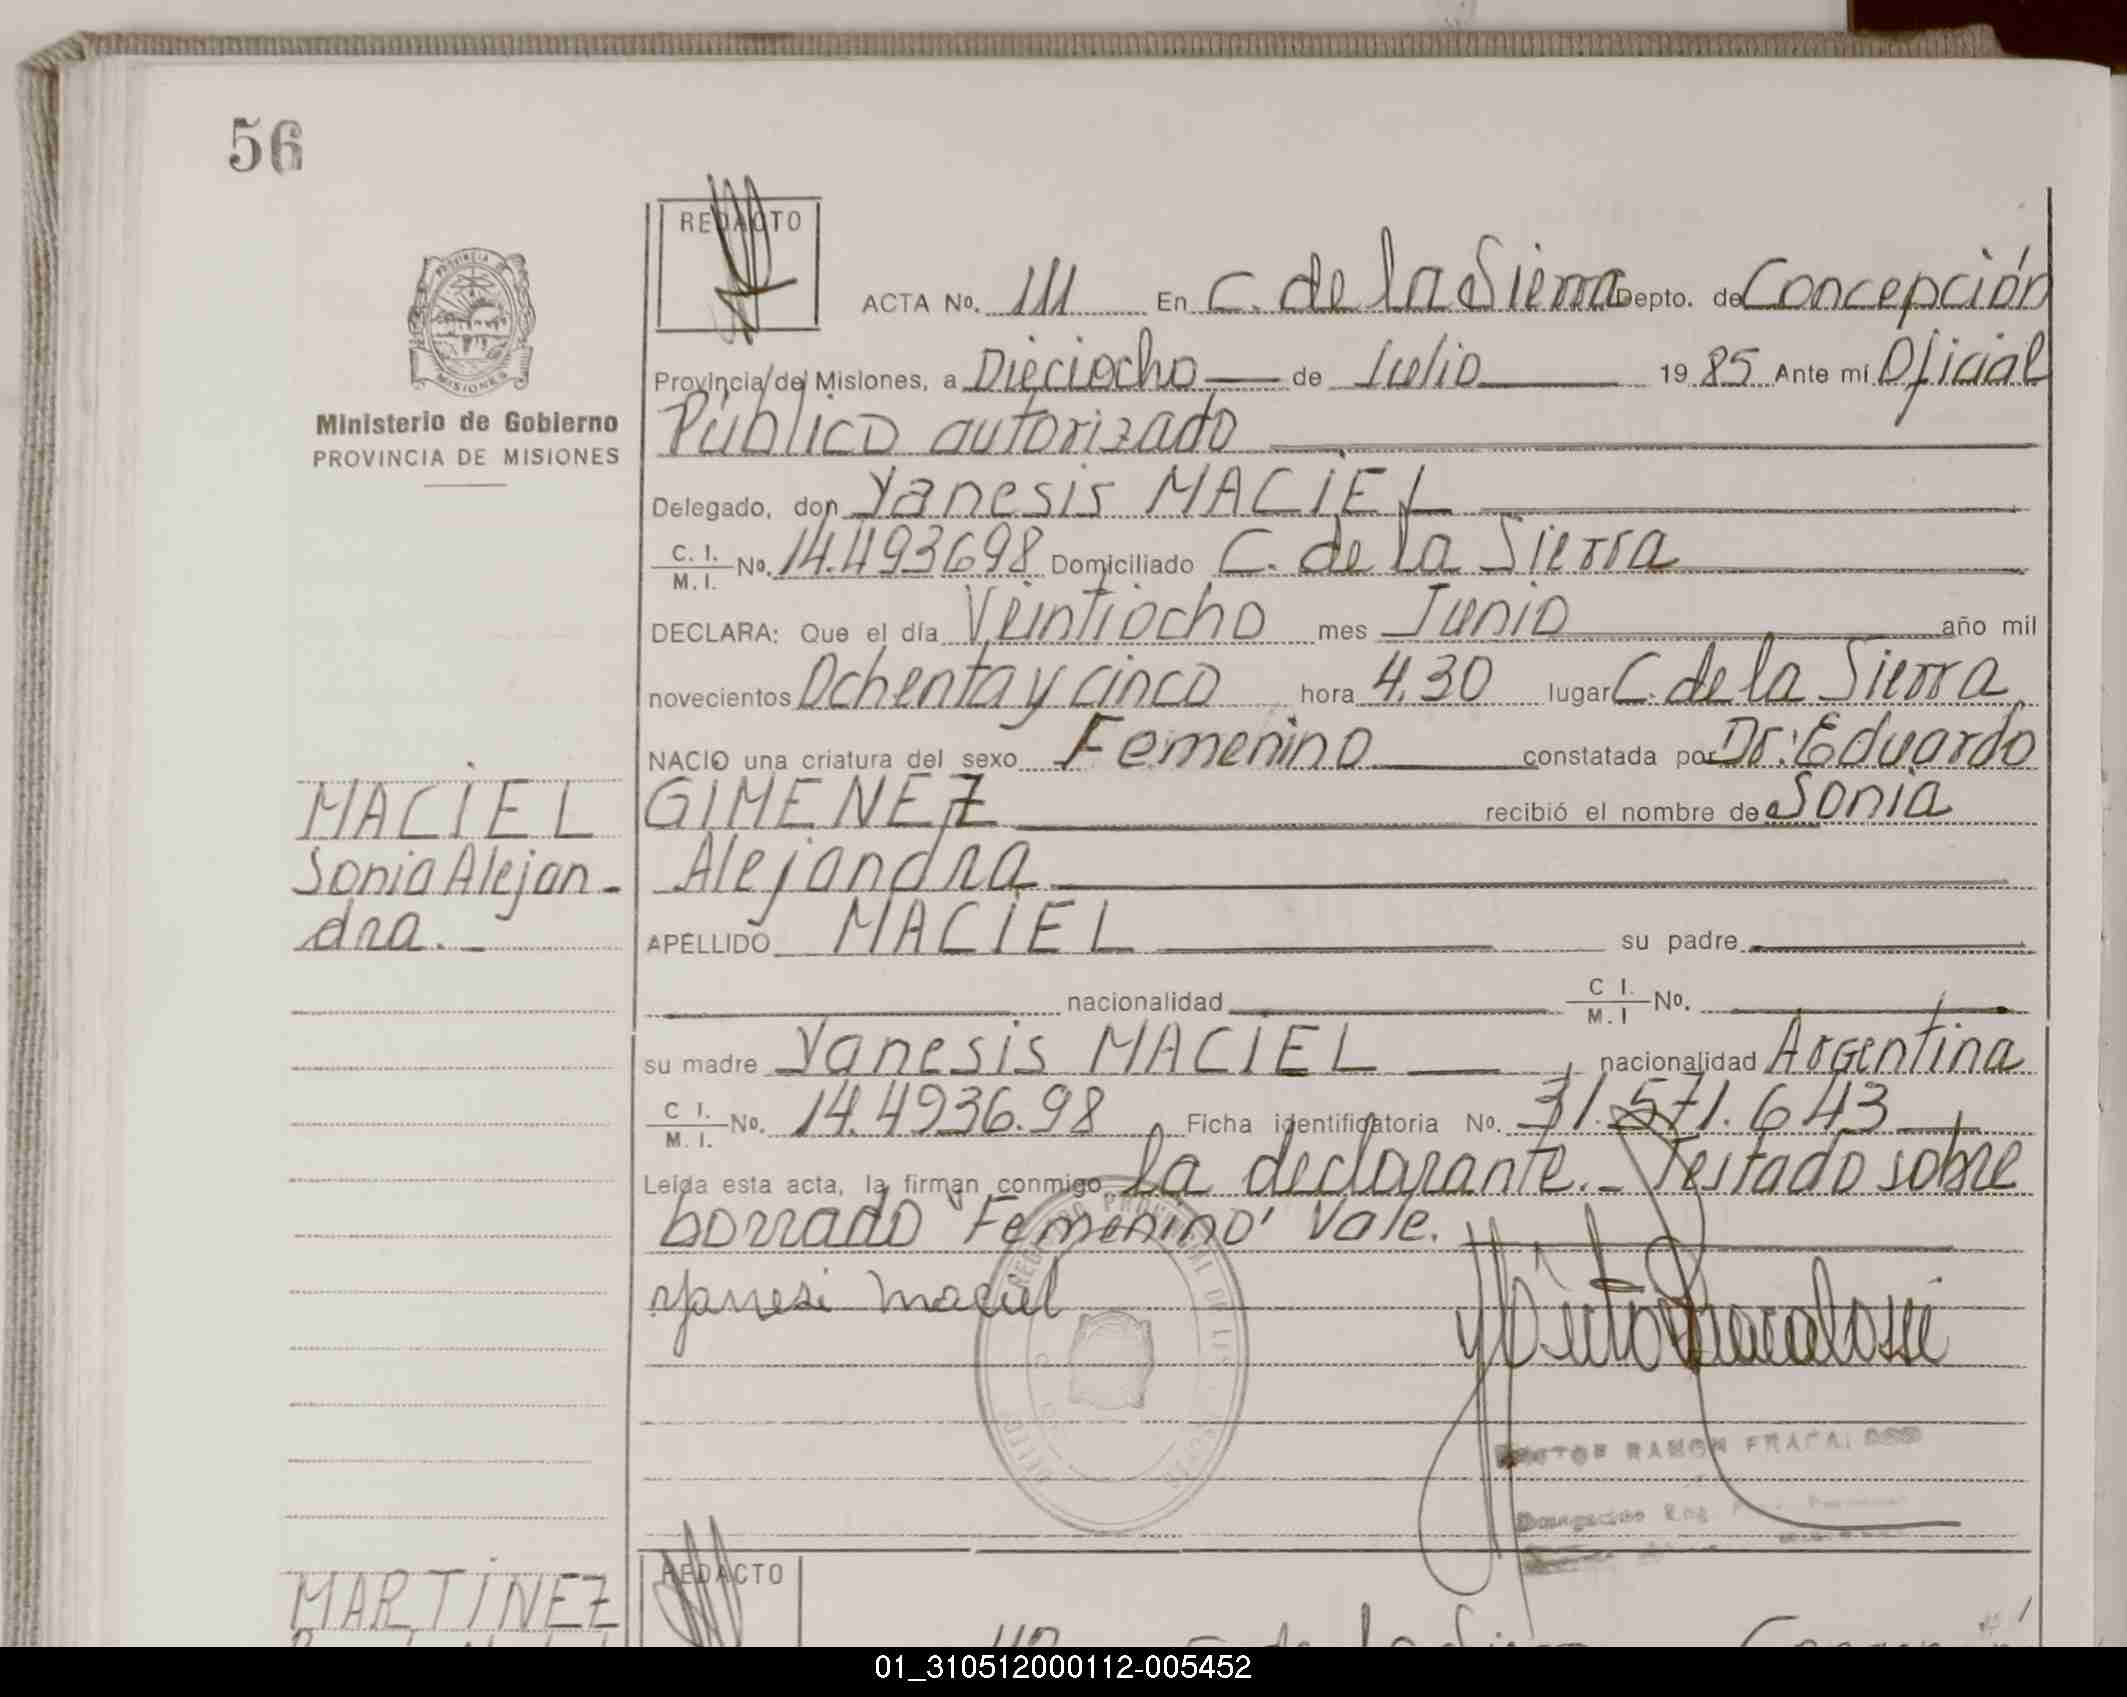 56
REDACTO
ACTA No. 111 En C. de la Sierra Depto. de Concepción
Provincia de Misiones, a Dieciocho de Julio 1985 Ante mí Oficial
Público autorizado
Ministerio de Gobierno
PROVINCIA DE MISIONES
Delegado, don Yanesis MACIEL
C. I. / M. I. No. 14.493698 Domiciliado C. de la Sierra
DECLARA: Que el día Veintiocho mes Junio año mil
novecientos Ochenta y cinco hora 4.30 lugar C. de la Sierra
NACIO una criatura del sexo Femenino constatada por Dr: Eduardo
MACIEL
Sonia Alejan-
dra.
GIMENEZ recibió el nombre de Sonia
Alejandra
APELLIDO MACIEL su padre
nacionalidad C I. / M. I No.
su madre Yanesis MACIEL nacionalidad Argentina
C I. / M. I. No. 14.4936.98 Ficha identificatoria No. 31.571.643
Leída esta acta, la firman conmigo la declarante.- Testado sobre
borrado "Femenino" Vale.
Yanesi Maciel
RAMON
MARTINEZ
REDACTO
01_310512000112-005452